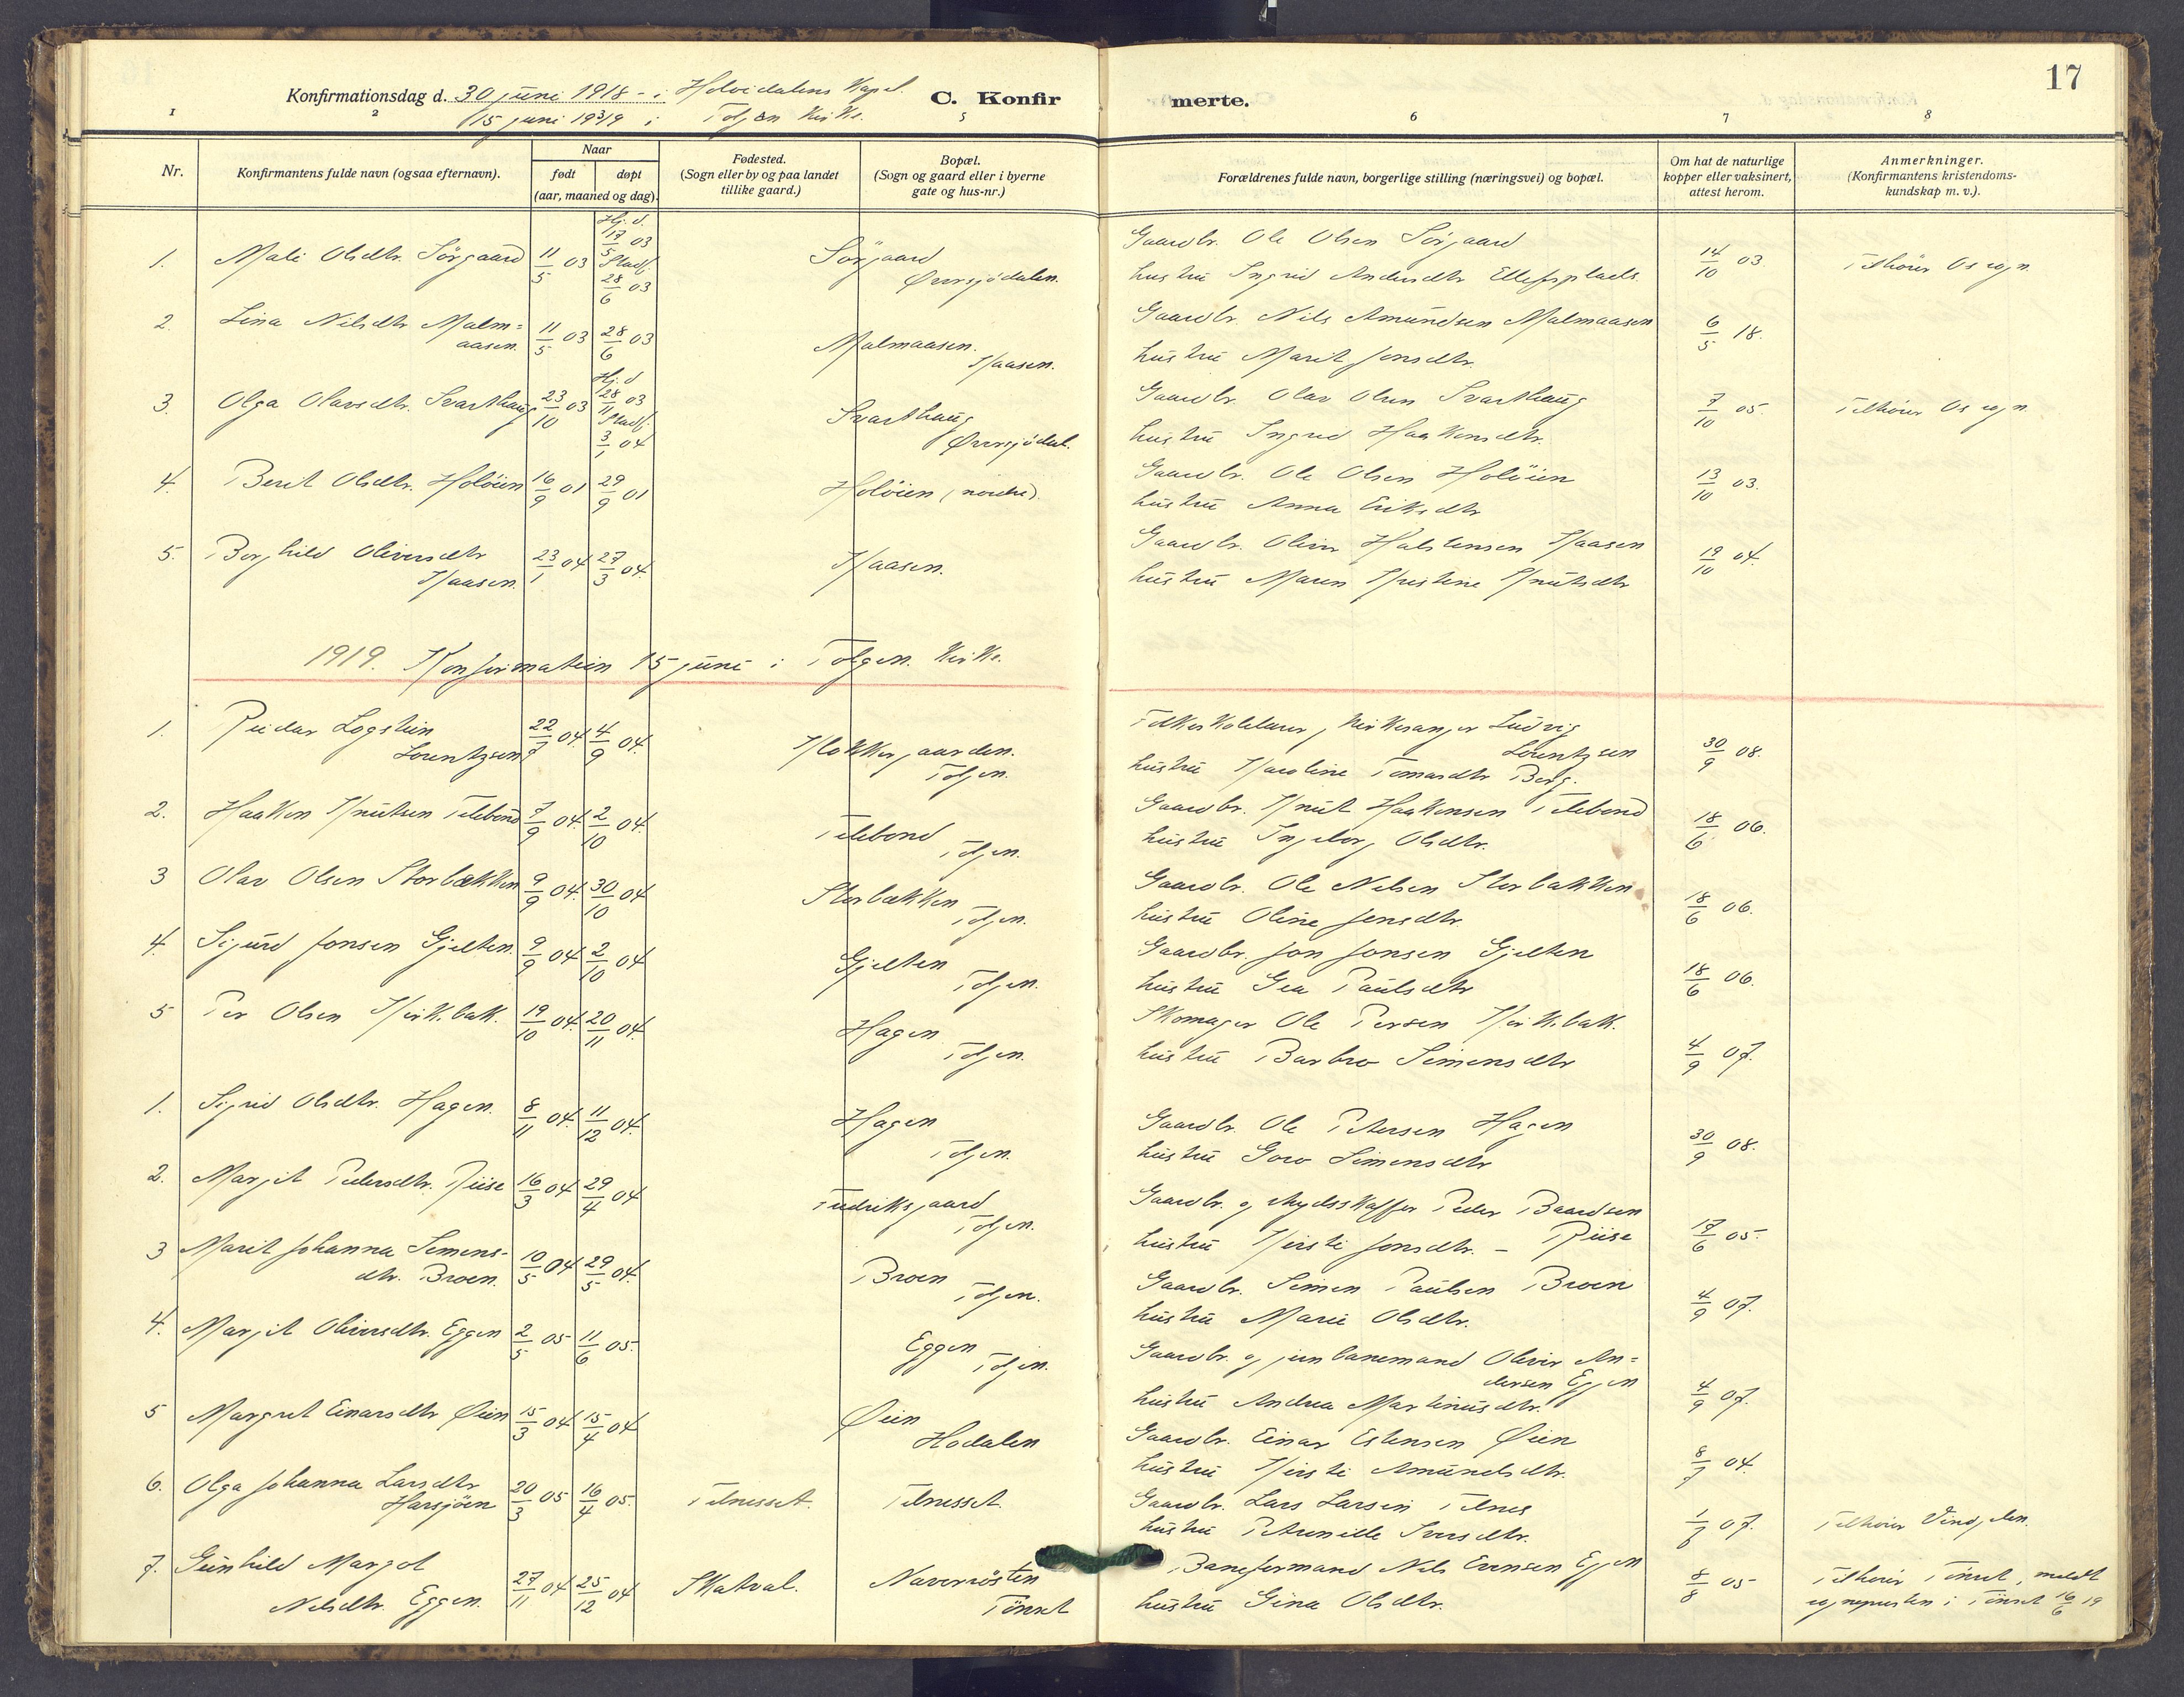 17
Konfirmationsdag d. 30 juni 1918 - i Holøidalens Kapel.
15 juni 1919 i Tolgen Kirke.
C. Konfir
merte.
1 2 5 6 7 8
Nr.
Konfirmantens fulde navn (ogsaa efternavn).
Naar
født
døpt
(aar, maaned og dag).
Fødested.
(Sogn eller by og paa landet
tillike gaard.)
Bopæl.
(Sogn og gaard eller i byerne
gate og hus-nr.)
Forældrenes fulde navn, borgerlige stilling (næringsvei) og bopæl.
Om hat de naturlige
kopper eller vaksinert,
attest herom.
Anmerkninger.
(Konfirmantens kristendoms-
kundskap m. v.).
1. Mali Olsdtr. Sörgaard 11/5 03 Hj. d. 17/5 03 Stadf. 28/6 03 Sörgaard Øversjödalen. Gaardbr. Ole Olsen Sörgaard 14/10 03 Tilhörer Os sogn.
hustru Ingrid Andersdtr Ellefsplads.
2. Lina Nilsdtr Malm= 11/5 03 28/6 03 Malmaasen. Gaardbr. Nils Amundsen Malmaasen 6/5 18.
aasen. Kaasen. hustru Marit Jonsdtr.
3. Olga Olavsdtr. Svarthaug 23/10 03 Hj. d. 28/11 03 Stadf. 3/1 04 Svarthaug Øversjödal. Gaardbr. Olav Olsen Svarthaug 7/10 05. Tilhörer Os sogn.
hustru Ingrid Haakensdtr.
4. Berit Olsdtr. Holöien 16/9 01 29/9 01 Holöien (nordre). Gaardbr. Ole Olsen Holöien 13/10 03.
hustru Anna Eriksdtr
5. Borghild Oliversdtr 23/1 04 27/3 04. Kaasen. Gaardbr. Oliver Halstensen Kaasen 19/10 04.
Kaasen. hustru Maren Kristine Knutsdtr
1919. Konfirmation 15 juni i Tolgen Kirke.
1. Reidar Logstein 22/7 04. 4/9 04. Klokkergaarden. Folkeskolelærer, kirkesanger Ludvig 30/9 08.
Lorentzsen Tolgen. Lorentzsen
hustru Karoline Tomasdtr Berg.
2. Haaken Knutsen Telebond 7/9 04. 2/10 04. Telebond Tolgen. Gaardbr. Knut Haakensen Telebond 18/6 06.
hustru Ingeborg Olsdtr.
3 Olav Olsen Storbækken 9/9 04. 30/10 04 Storbækken Tolgen. Gaardbr. Ole Nelsen Storbækken 18/6 06.
hustru Oline Jensdtr.
4. Sigurd Jonsen Gjelten. 9/9 04 2/10 04 Gjelten Tolgen. Gaardbr. Jon Jonsen Gjelten 18/6 06.
hustru Gea Paulsdtr
5 Per Olsen Kirkbak. 19/10 04. 20/11 04. Hagen Tolgen. Skomager Ole Persen Kirkbak. 4/9 07.
hustru Barbro Simensdtr
1. Sigrid Olsdtr. Hagen. 8/11 04. 11/12 04. Hagen Tolgen. Gaardbr. Ole Petersen Hagen 30/9 08.
hustru Goro Simensdtr
2. Margit Pedersdtr. Riise 16/3 04 29/4 04 Fredriksgaard Tolgen. Gaardbr. og skydsskaffer Peder Baardsen 17/6 05.
hustru Kirsti Jonsdtr. - Riise
3 Marit Johanna Simens- 10/5 04 29/5 04. Broen Tolgen. Gaardbr. Simen Paulsen Broen 4/9 07.
dtr. Broen. hustru Marie Olsdtr.
4. Margit Oliversdtr. Eggen 2/5 05 11/6 05. Eggen Tolgen. Gaardbr. og jernbanemand Oliver An= 4/9 07.
dersen Eggen
hustru Andrea Martinusdtr.
5 Margret Einarsdtr Øien 15/3 04 15/4 04 Øien Hodalen Gaardbr. Einar Estensen Øien 8/7 04.
hustru Kirsti Amundsdtr.
6. Olga Johanna Larsdtr 20/3 05 16/4 05. Telnesset. Telnesset. Gaardbr. Lars Larsen Telnes 07. Tilhörer Vingelen.
Harsjöen hustru Petronille Iversdtr.
7. Gunhild Margot 27/11 04 25/12 04 Skatval. Naverrösten Baneformand Nils Evensen Eggen 8/8 05 Tilhörer Tönset, meldt
Nelsdtr. Eggen. Tönset hustru Gina Olsdtr. sogneprestn i Tönset 16/6 19